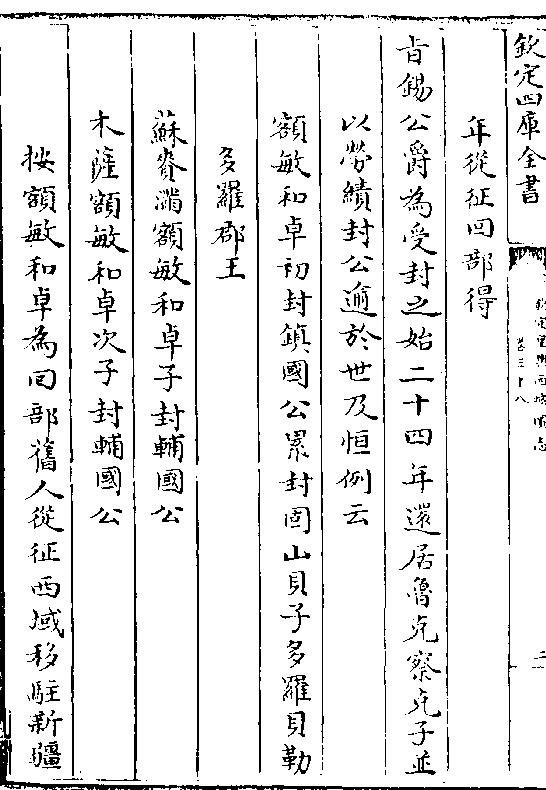 欽定四庫全書
欽定皇輿西域圖志
卷三十八
二
年從征回部得
旨錫公爵為受封之始二十四年還居魯克察克子並
以勞績封公逾於世及恒例云
額敏和卓初封鎮國公累封固山貝子多羅貝勒
多羅郡王
蘇賚滿額敏和卓子封輔國公
木薩額敏和卓次子封輔國公
按額敏和卓為回部舊人從征西域移駐新疆